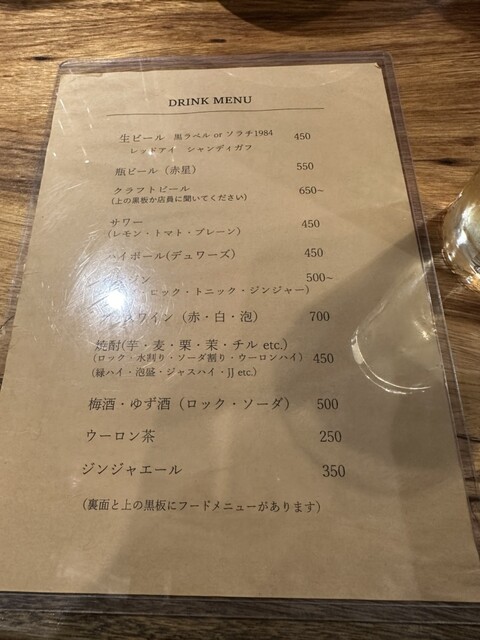 DRINK MENU
生ビール 黒ラベル or ソラチ1984 450
レッドアイ シャンディガフ
瓶ビール（赤星） 550
クラフトビール 650~
(上の黒板か店員に聞いてください)
サワー 450
(レモン・トマト・プレーン)
ハイボール(デュワーズ) 450
500~
ロック・トニック・ジンジャー)
ワイン（赤・白・泡） 700
焼酎(芋・麦・栗・茉・チル etc.)
(ロック・水割り・ソーダ割り・ウーロンハイ) 450
(緑ハイ・泡盛・ジャスハイ・JJ etc.)
梅酒・ゆず酒（ロック・ソーダ） 500
ウーロン茶 250
ジンジャエール 350
（裏面と上の黒板にフードメニューがあります）